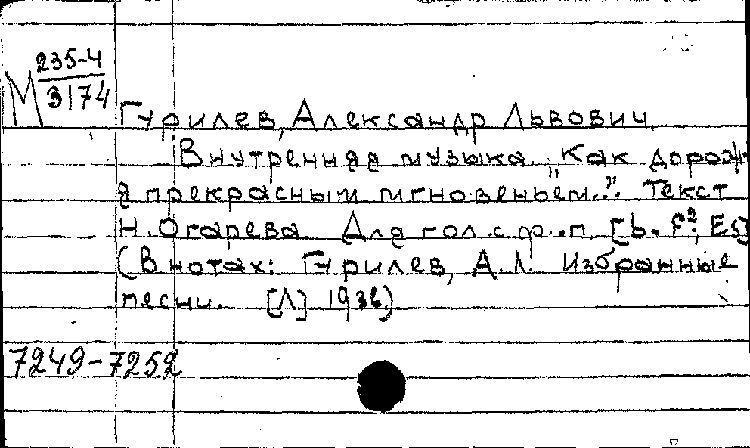 М 235-4
3174
Гурилев, Александр Львович.
Внутренняя музыка. „Как дорож
я прекрасным мгновеньем...". Текст
Н. Огарева. Для гол. с ф.-п. [b. f², Es]
(В нотах: Гурилев, А.Л. Избранные
песни. [Л] 1936)
7249-7252